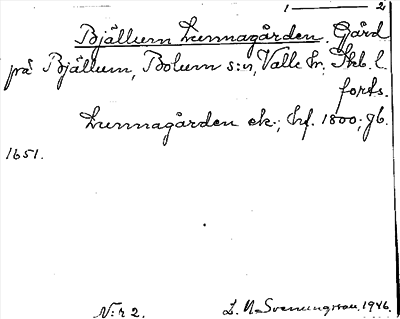 1 — 2
Bjällum Lunnagården. Gård
på Bjällum, Bolum s:n, Valle hr; Skb. l.
forts.
Lunnagården ek.; hf. 1800; gb.
1651.
N:r 2. L. N-Svenungsson. 1946.